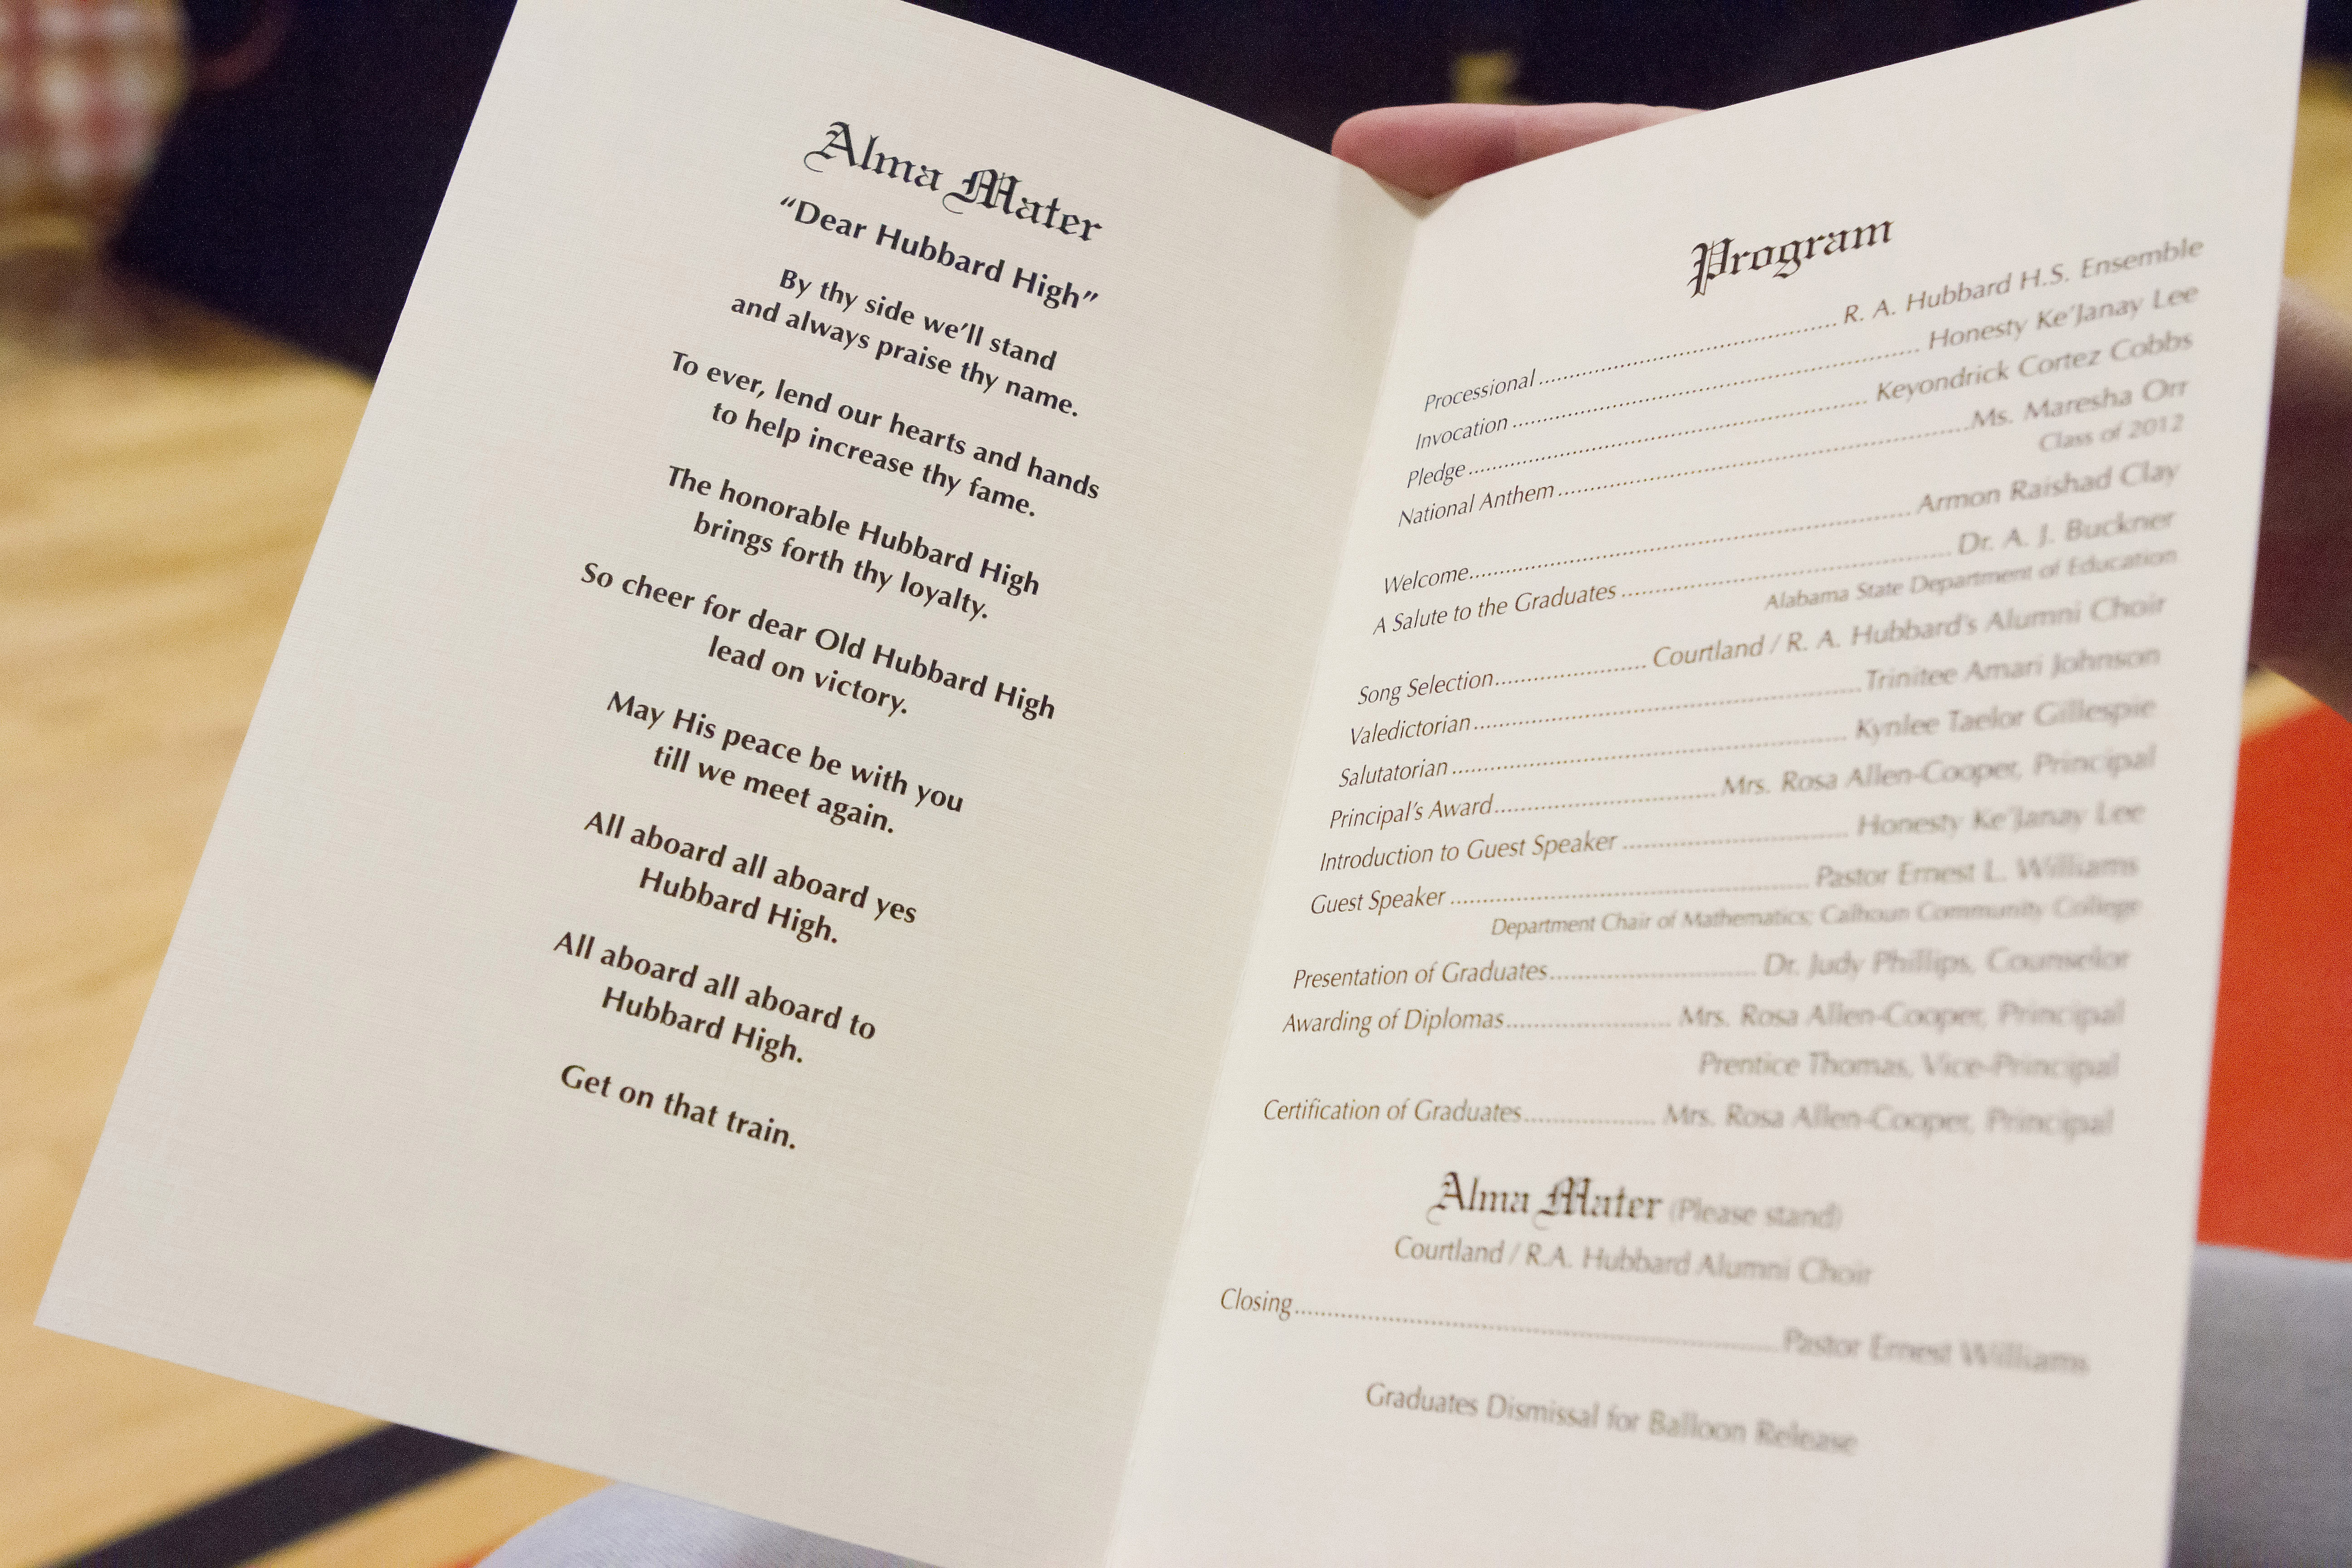 Alma Mater
“Dear Hubbard High”
By thy side we’ll stand
and always praise thy name.
To ever, lend our hearts and hands
to help increase thy fame.
The honorable Hubbard High
brings forth thy loyalty.
So cheer for dear Old Hubbard High
lead on victory.
May His peace be with you
till we meet again.
All aboard all aboard yes
Hubbard High.
All aboard all aboard to
Hubbard High.
Get on that train.
Program
Processional ................................................ R. A. Hubbard H.S. Ensemble
Invocation ................................................................ Honesty Ke’Janay Lee
Pledge ................................................................ Keyondrick Cortez Cobbs
National Anthem ................................................................ Ms. Maresha Orr
Class of 2012
Welcome ................................................................ Armon Raishad Clay
A Salute to the Graduates ................................................ Dr. A. J. Buckner
Alabama State Department of Education
Song Selection ........................ Courtland / R. A. Hubbard’s Alumni Choir
Valedictorian ................................................................ Trinitee Amari Johnson
Salutatorian ................................................................ Kynlee Taelor Gillespie
Principal’s Award .................................... Mrs. Rosa Allen-Cooper, Principal
Introduction to Guest Speaker .................................... Honesty Ke’Janay Lee
Guest Speaker ................................................ Pastor Ernest L. Williams
Department Chair of Mathematics; Calhoun Community College
Presentation of Graduates .................................... Dr. Judy Phillips, Counselor
Awarding of Diplomas ........................ Mrs. Rosa Allen-Cooper, Principal
Prentice Thomas, Vice-Principal
Certification of Graduates .................... Mrs. Rosa Allen-Cooper, Principal
Alma Mater (Please stand)
Courtland / R.A. Hubbard Alumni Choir
Closing ................................................................ Pastor Ernest Williams
Graduates Dismissal for Balloon Release